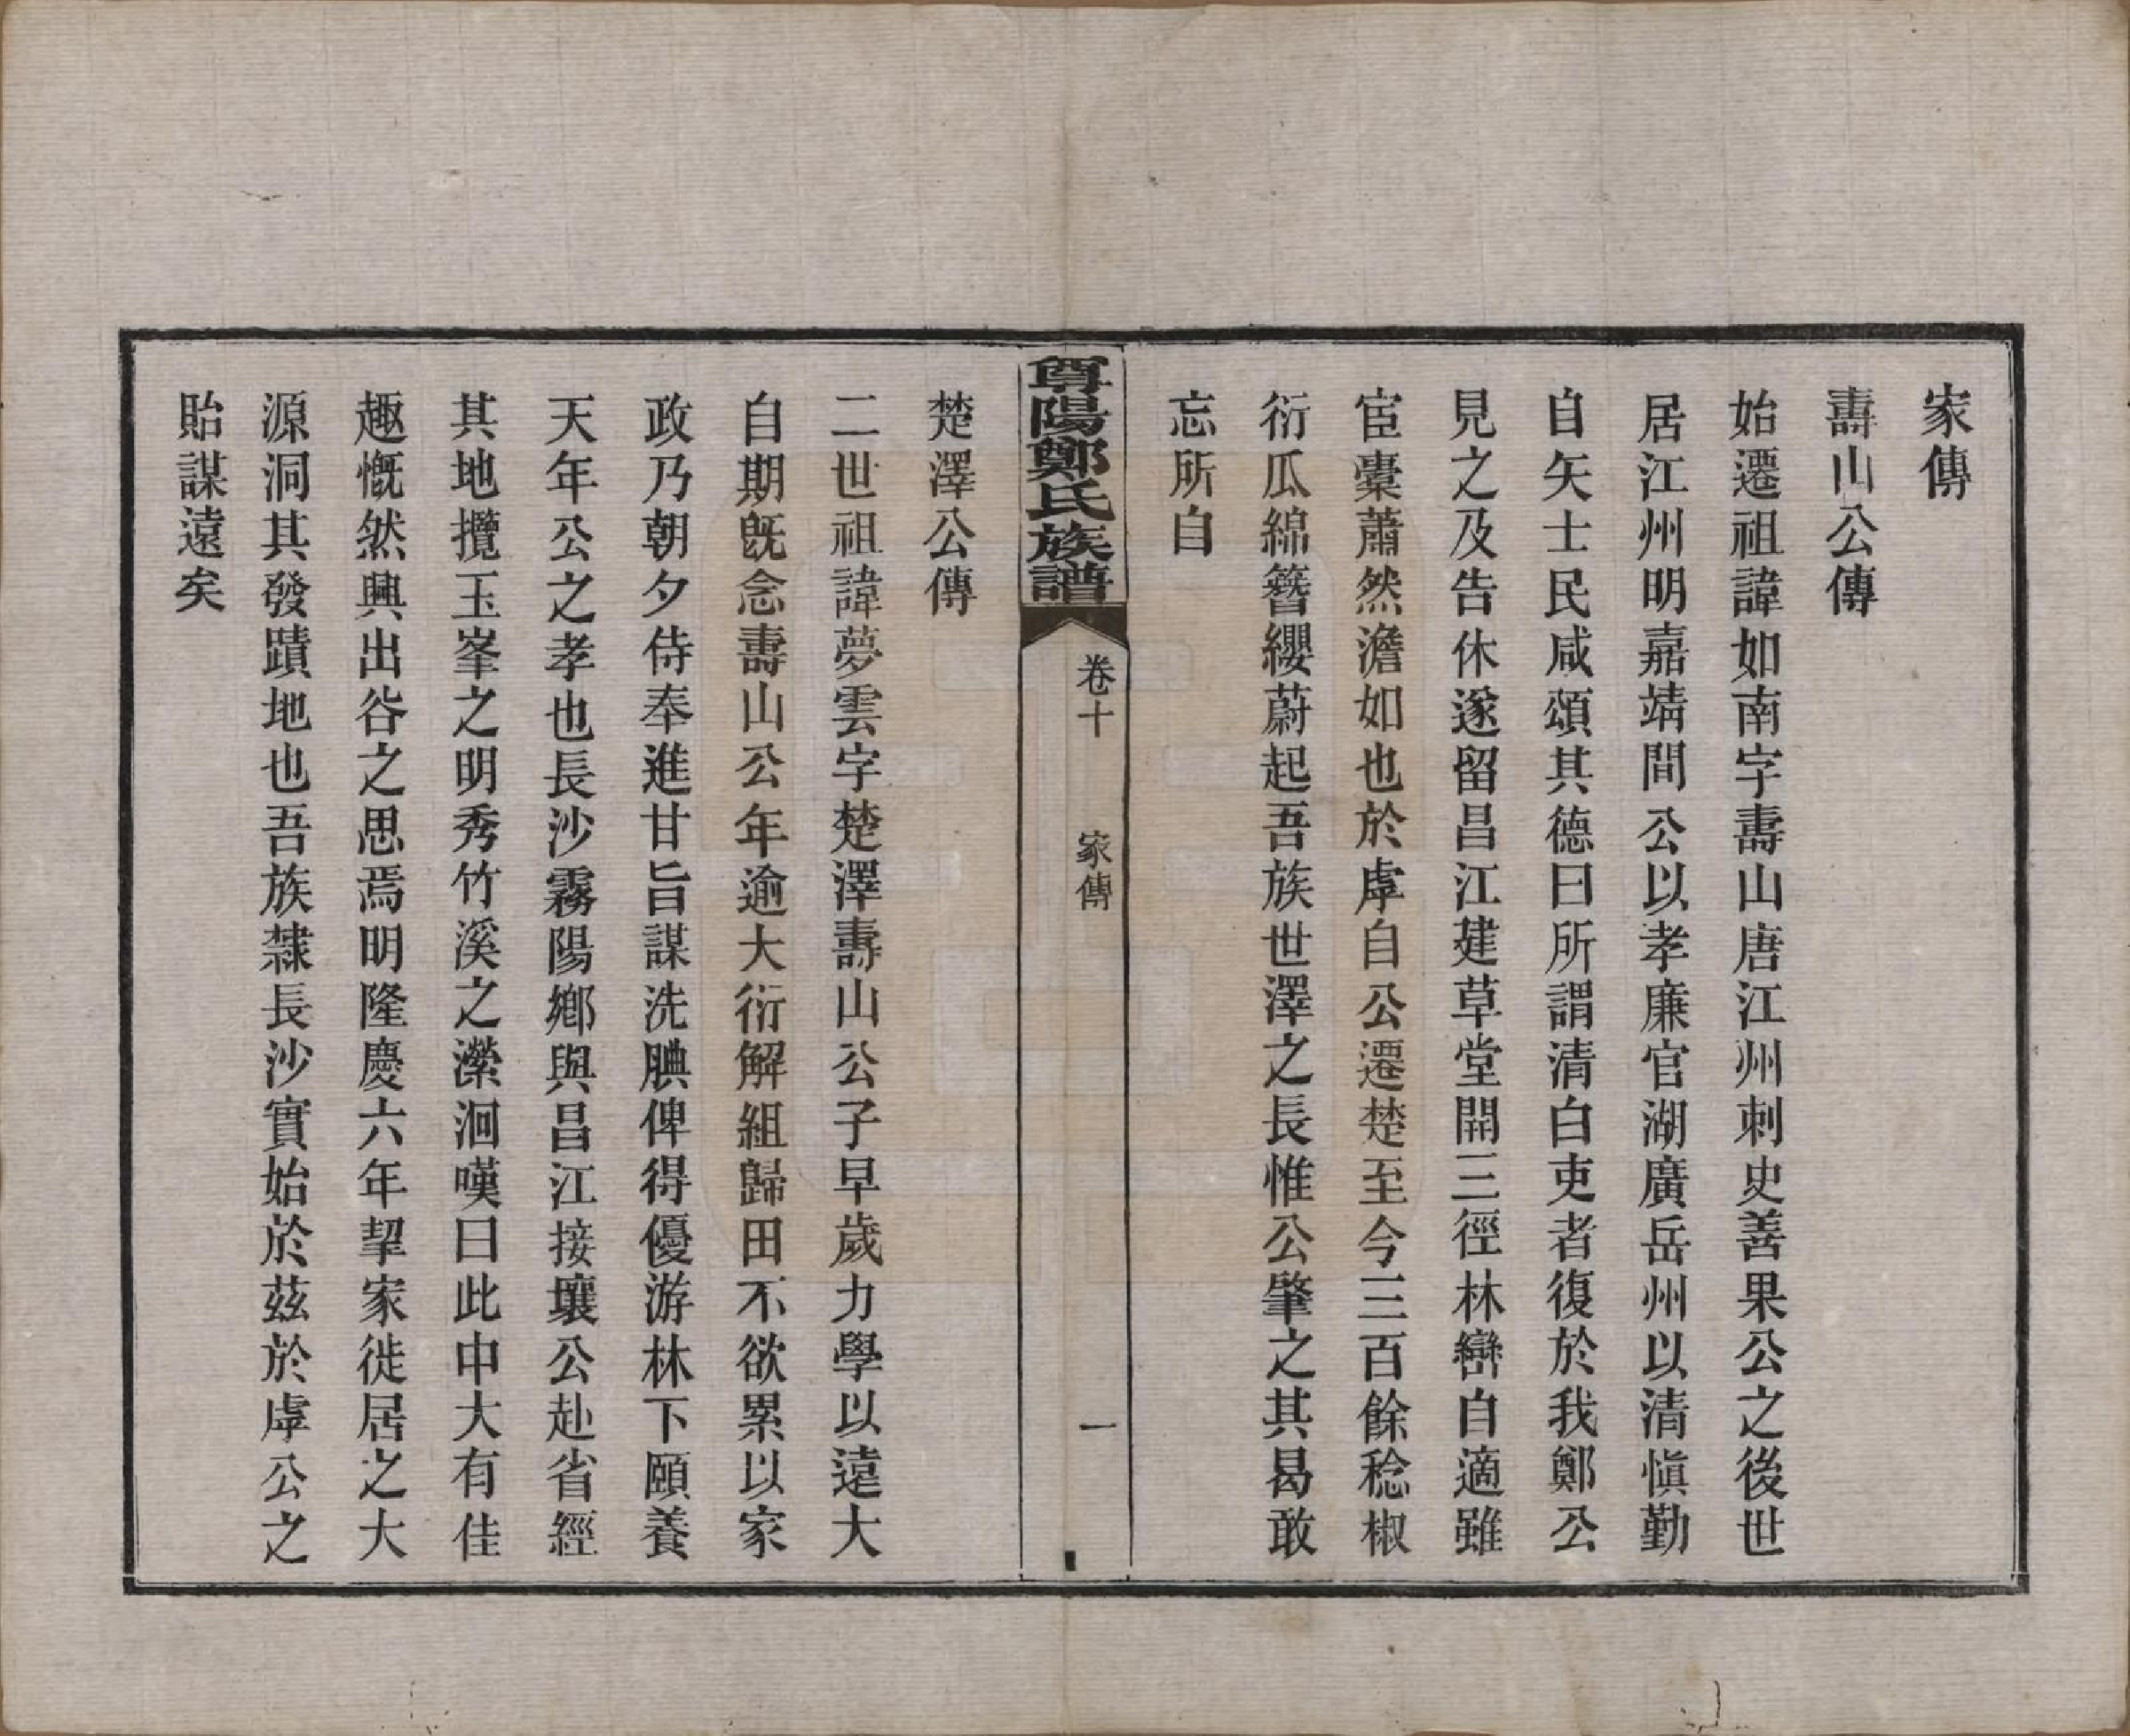 家傳
壽山公傳
始遷祖諱如南字壽山唐江州刺史善果公之後世
居江州明嘉靖間公以孝廉官湖廣岳州以清愼勤
自矢士民咸頌其德曰所謂清白吏者復於我鄭公
見之及告休遂留昌江建草堂開三徑林巒自適雖
宦橐蕭然澹如也於虖自公遷楚至今三百餘稔椒
衍瓜綿簪纓蔚起吾族世澤之長惟公肇之其曷敢
忘所自
尊陽鄭氏族譜 卷十 家傳 一
楚澤公傳
二世祖諱夢雲字楚澤壽山公子早歲力學以遠大
自期旣念壽山公年逾大衍解組歸田不欲累以家
政乃朝夕侍奉進甘旨謀洗腆俾得優游林下頤養
天年公之孝也長沙霧陽鄉與昌江接壤公赴省經
其地攬玉峯之明秀竹溪之瀠洄嘆曰此中大有佳
趣慨然興出谷之思焉明隆慶六年挈家徙居之大
源洞其發蹟地也吾族隸長沙實始於茲於虖公之
貽謀遠矣